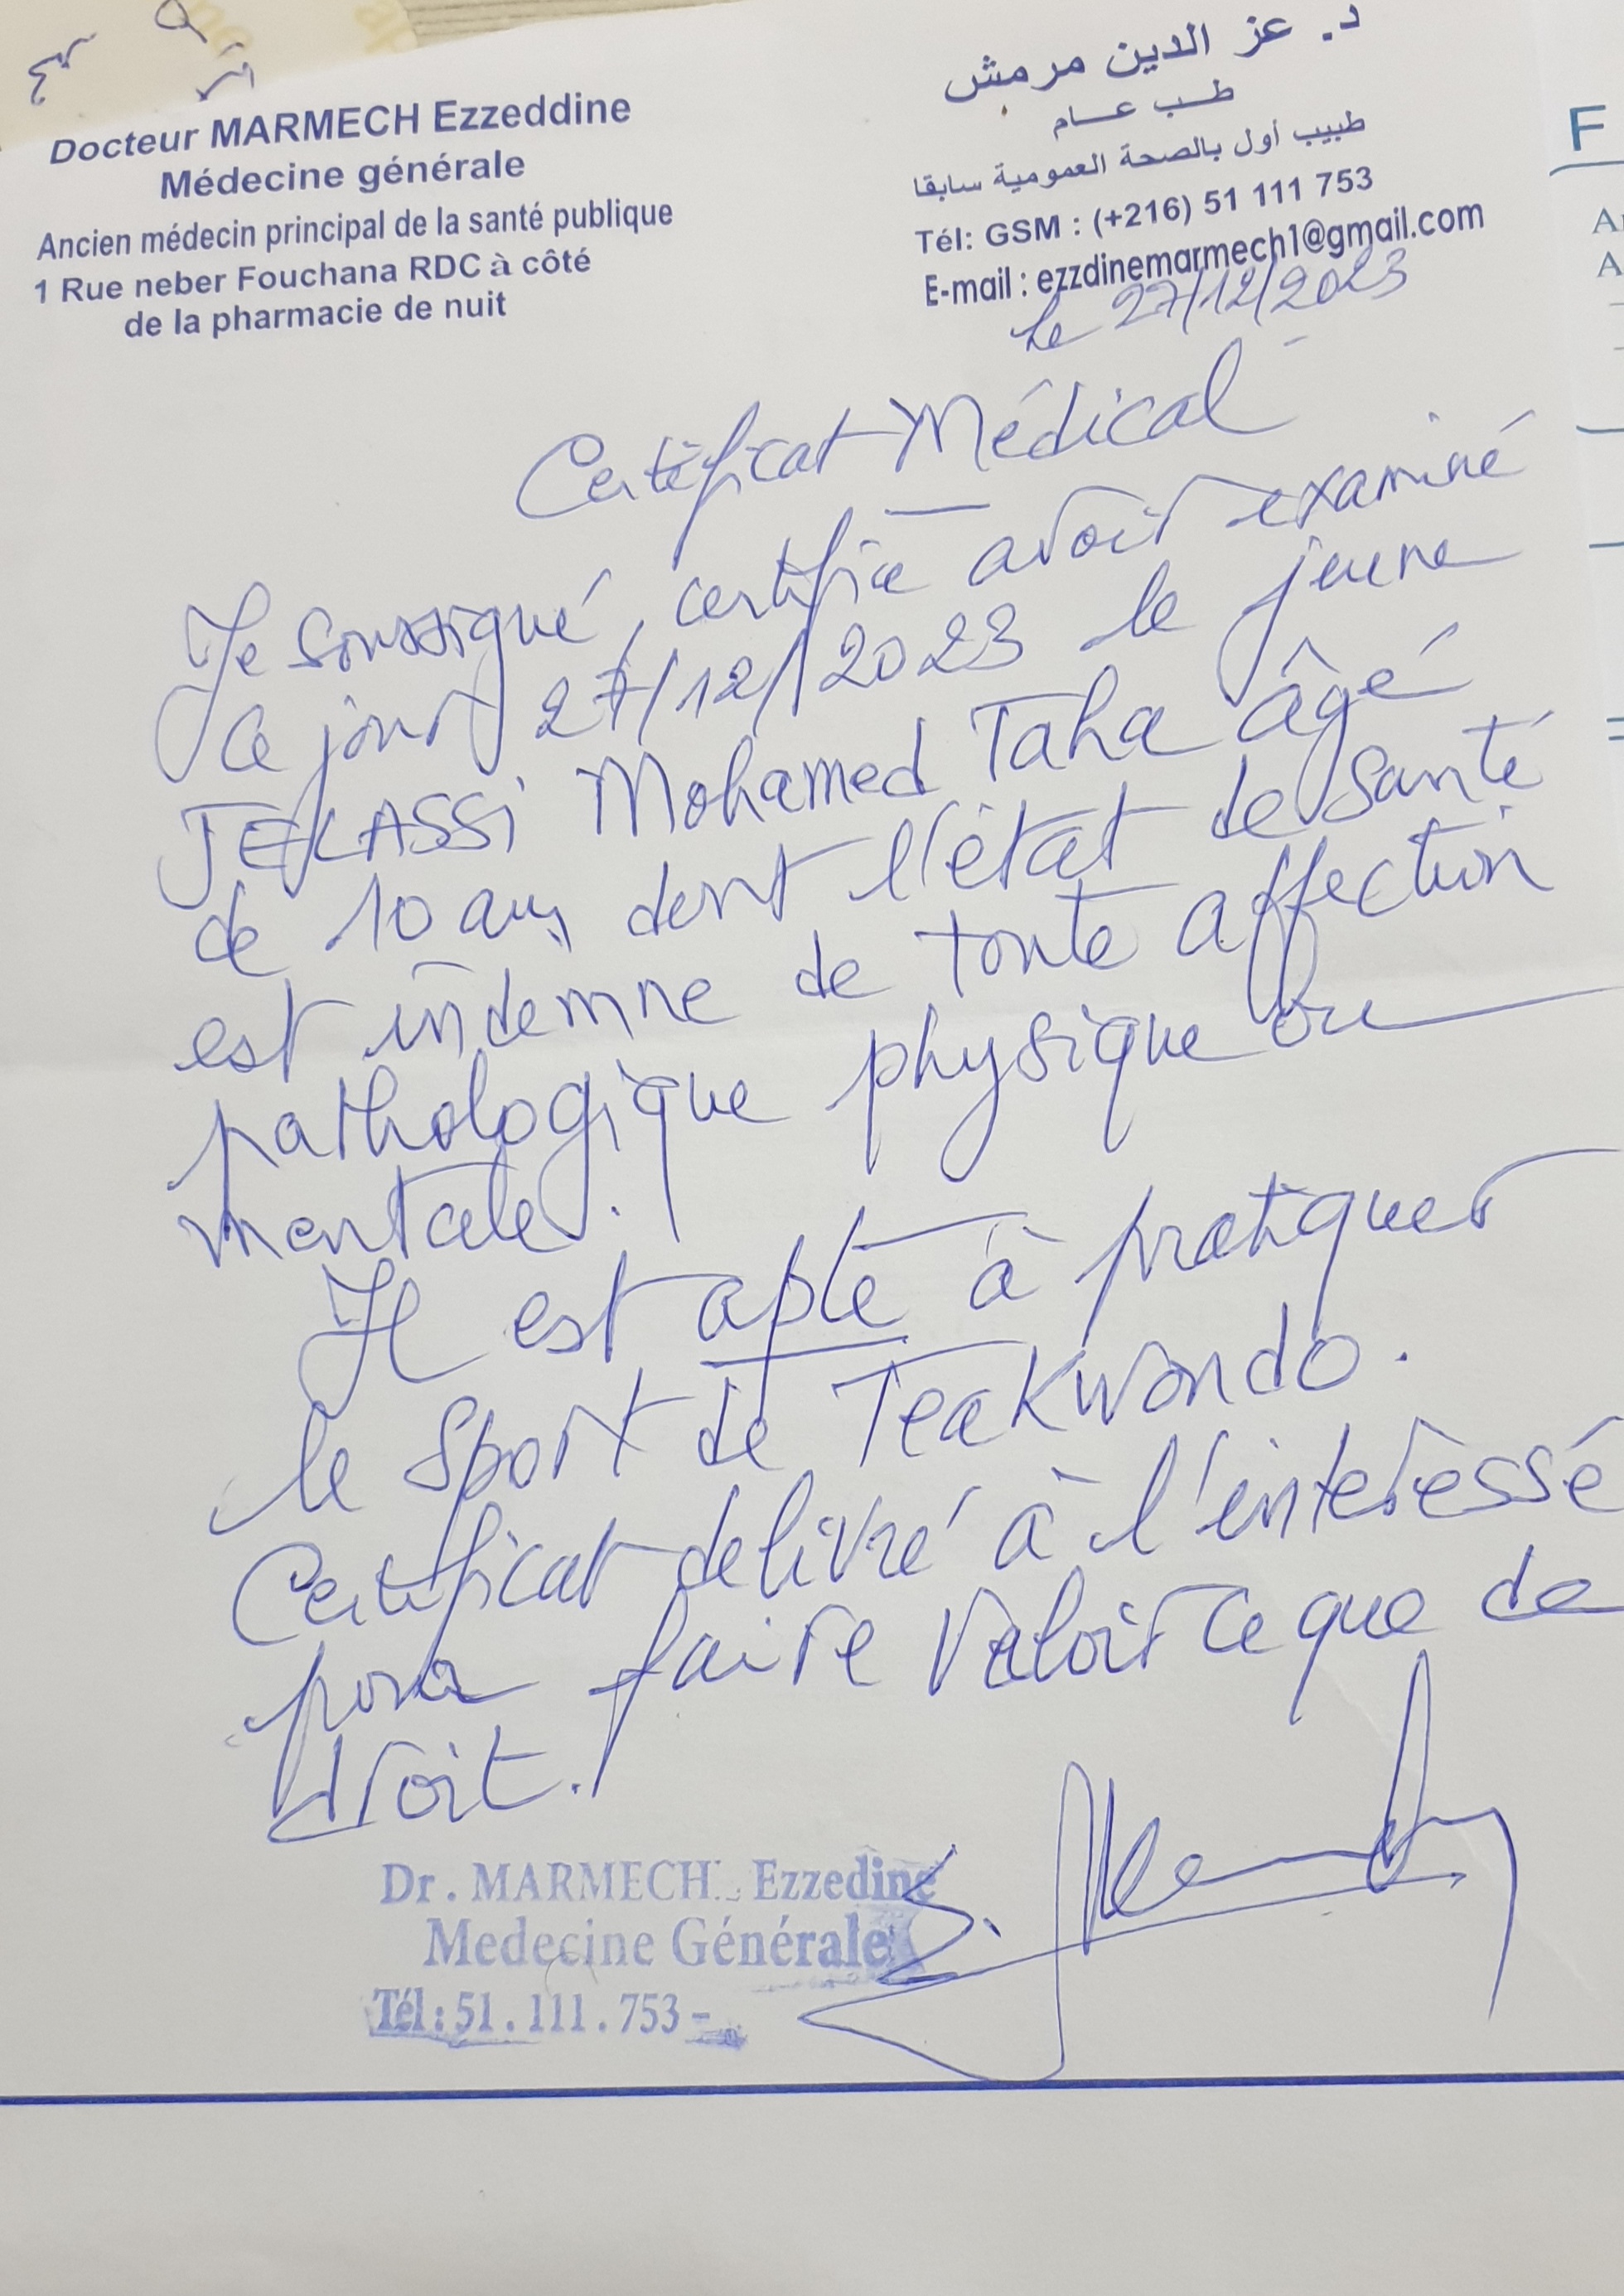 Docteur MARMECH Ezzeddine
Médecine générale
Ancien médecin principal de la santé publique
1 Rue neber Fouchana RDC à côté
de la pharmacie de nuit
د. عز الدين مرمش
طب عام
طبيب أول بالصحة العمومية سابقا
Tél: GSM : (+216) 51 111 753
E-mail : ezzdinemarmech1@gmail.com
Le 27/12/2023
Certificat Médical
Je soussigné, certifie avoir examiné
ce jour 27/12/2023 le jeune
Mohamed Taha âgé
de 10 ans dont l'état de santé
est indemne de toute affection
pathologique physique ou
mentale.
Il est apte à pratiquer
le Sport de Teakwondo.
Certificat delivré à l'interessé
pour faire valoir ce que de
droit.
Dr. MARMECH Ezzedine
Medecine Générale
Tél : 51 . 111 . 753 -
F